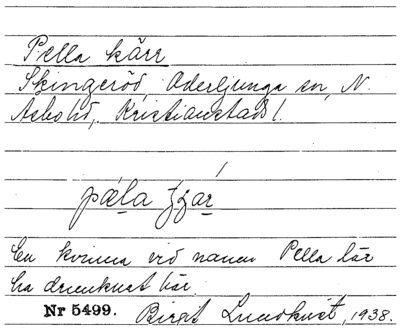 Pella kärr
Skingeröd, Oderljunga sn, N.
Åsbo hd, Kristianstads l.
En kvinna vid namn Pella lär
ha drunknat här.
Nr 5499. Birgit Lundkvist, 1938.